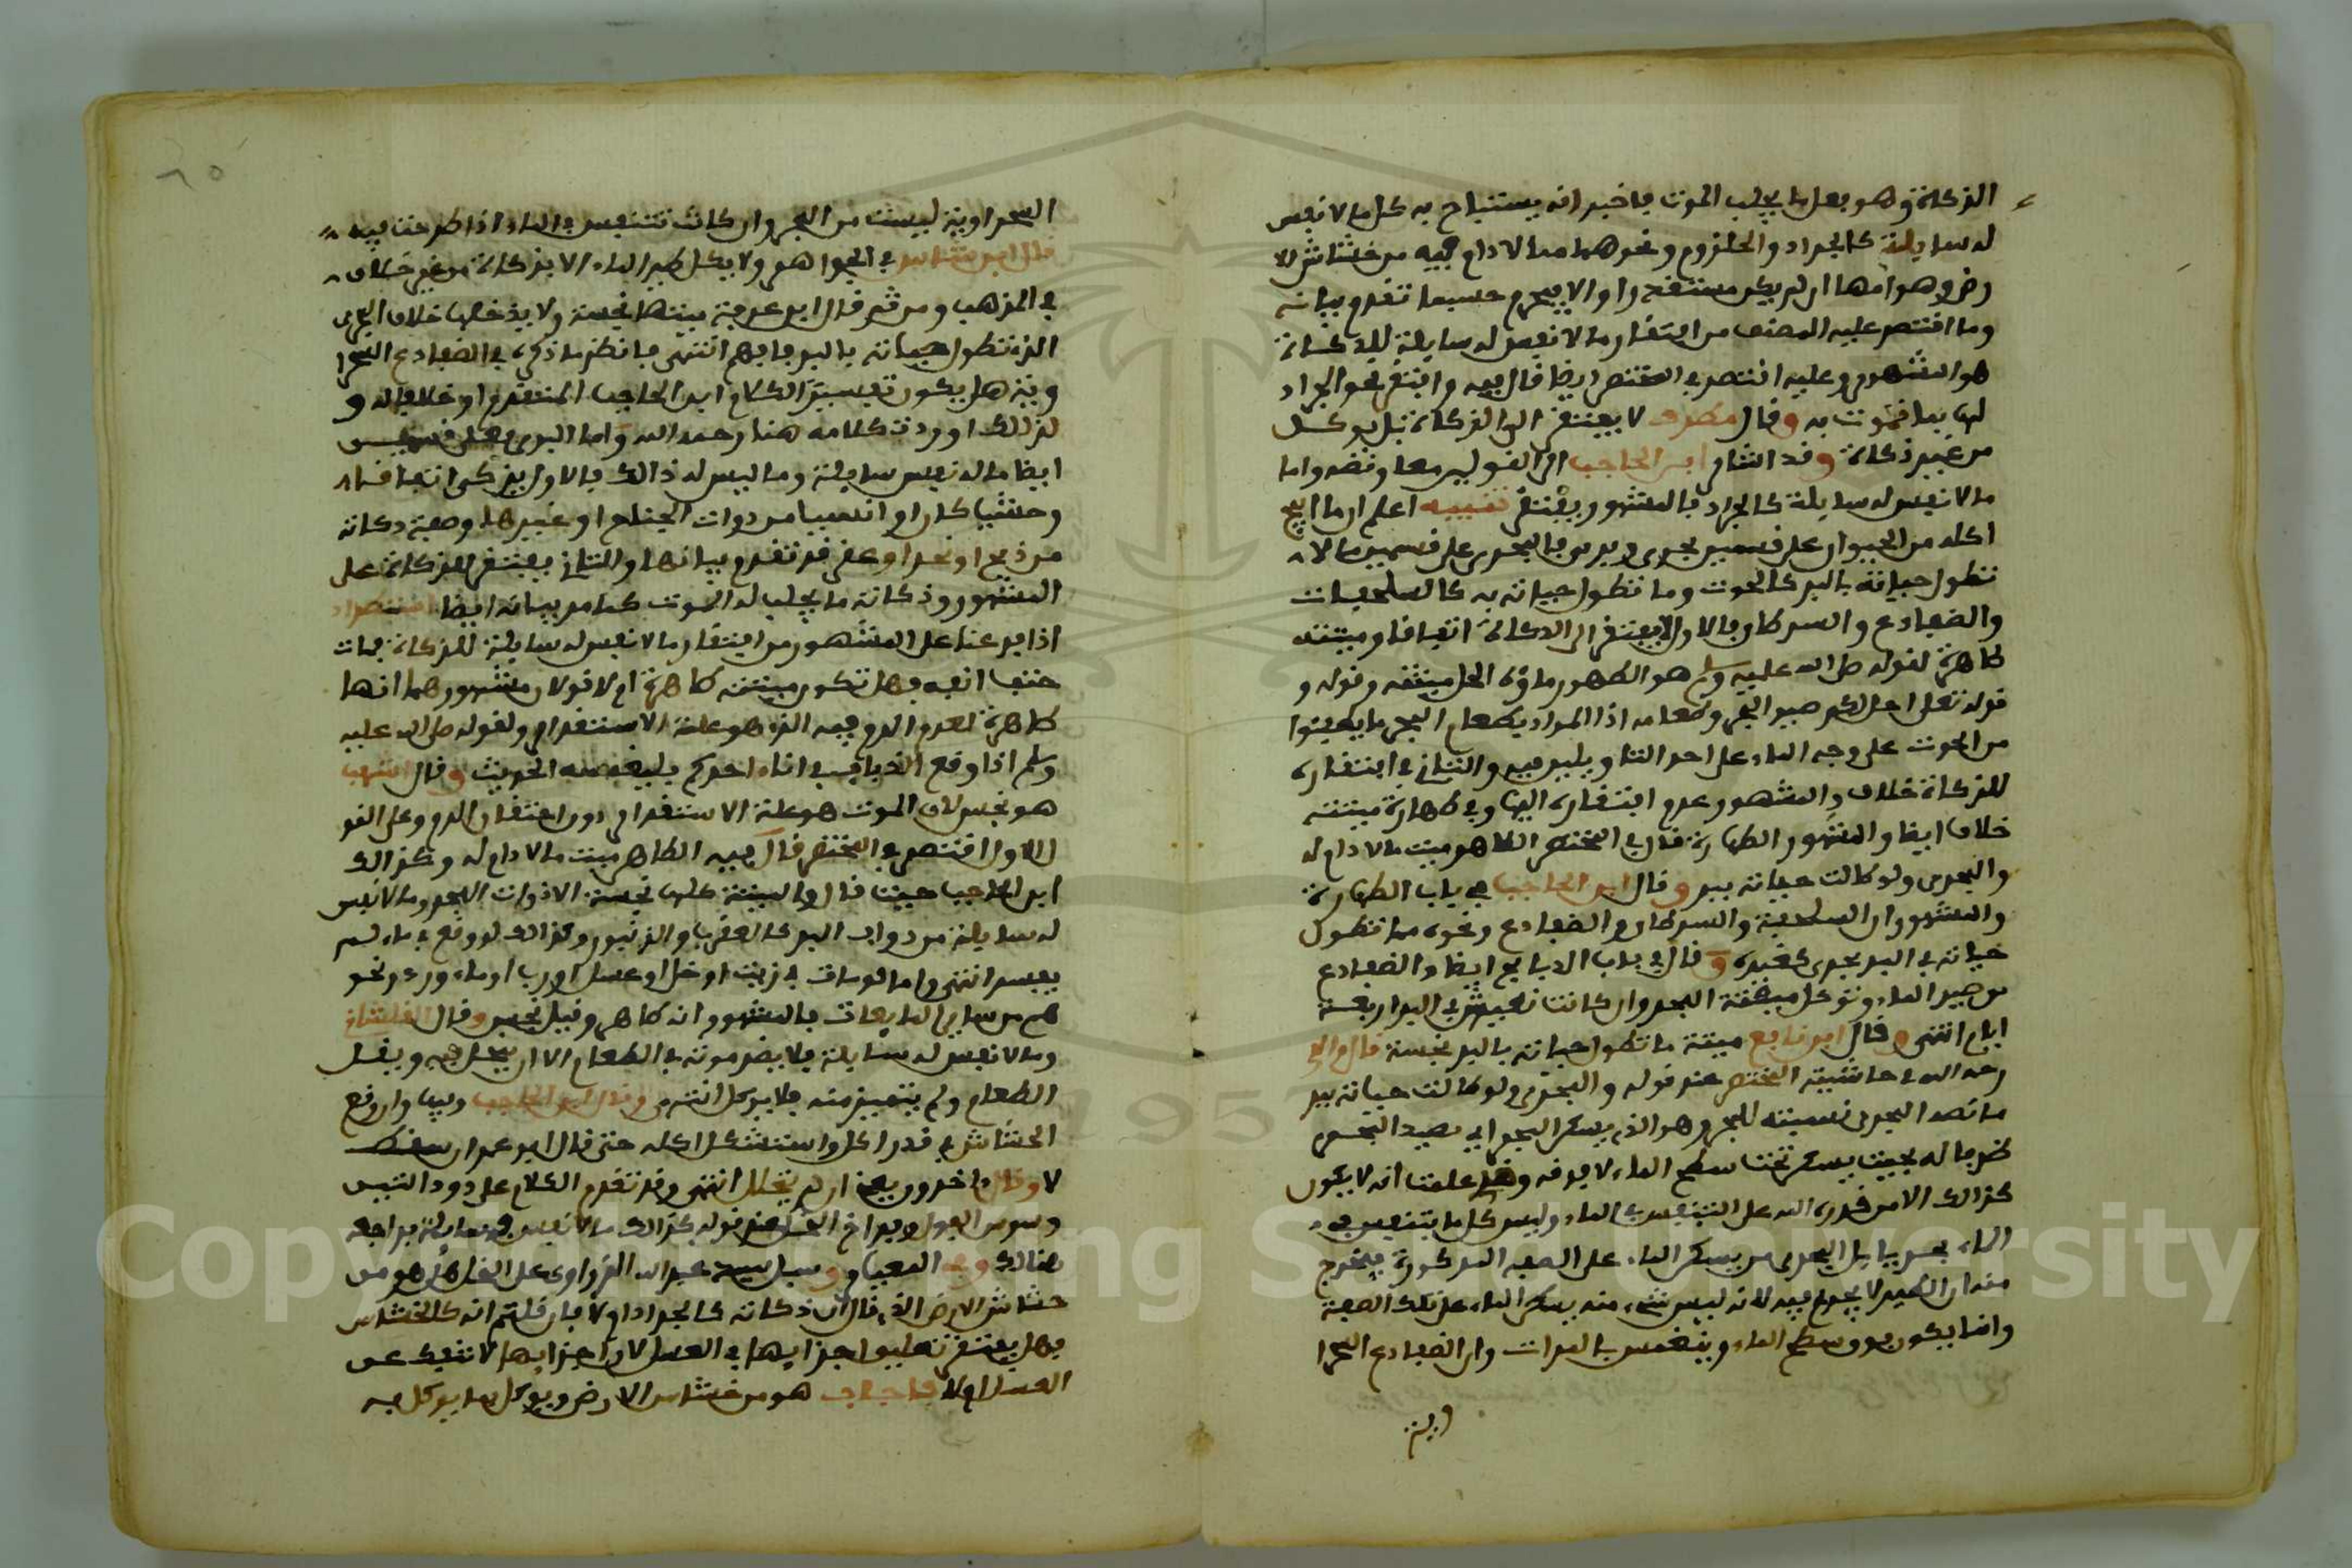 الذكاة وهو بعل ما يجلب الموت فاخبر انه يستباح به كل ما لا نفس
له سايلة كالجراد والحلزوم ونحوهما مما لا دام فيه من خشاش الا
رض وهوامها ان لم يكن مستقذرا والا فيحرم حسبما تقدم بيانه
وما اقتصر عليه المصنف من افتقار ما لا نفس له سايلة للذكاة
هو المشهور وعليه اقتصر في المختصر ايضا قال فيه وافتقر نحو الجراد
لها بما يموت به وقال مطرف لا يفتقر الى الذكاة بل يوكل
من غير ذكاة وقد اشار ابن الحاجب الى القولين معا ونصه واما
ما لا نفس له سايلة كالجراد فالمشهور يفتقر تنبيه اعلم ان ما ابيح
اكله من الحيوان على قسمين بحري وبري فالبحري على قسمين ما لا
تطول حياته بالبر كالحوت وما تطول حياته به كالسلحفات
والضفادع والسرطان فالاول لا يفتقر الى الذكاة اتفاقا وميتته
طاهرة لقوله صلى الله عليه وسلم هو الطهور ماؤه الحل ميتته وقوله و
قوله تعلى احل لكم صيد البحر وطعامه اذ المراد بطعام البحر ما يطفوا
من الحوت على وجه الماء على احد التاويلين فيه والثاني في افتقاره
للذكاة خلاف والمشهور عدم افتقاره اليها وفي طهارة ميتته
خلاف ايضا والمشهور الطهارة قال في المختصر الطاهر ميت ما لا دام له
والبحري ولو طالت حياته ببر وقال ابن الحاجب في باب الطهارة
والمشهور ان السلحفية والسرطان والضفادع ونحوه مما تطول
حياته في البر بحري كغيره وقال في باب الذبايح ايضا والضفادع
من صيد الماء وتوكل ميتة البحر وان كانت تعيش في البر اربعة
ايام انتهى وقال ابن نافع ميتة ما تطول حياته بالبر نجسة قال والدي
رحمه الله في حاشيته المختصر عند قوله والبحري ولو طالت حياته ببر
ما نصه البحري نسبته للبحر وهو الذي يسكن البحر اي يصيد البحر
ظرفا له بحيث يسكن تحت سطح الماء لا فوقه وقد علمت انه لا يكون
كذالك الا من قدره الله على التنفس في الماء وليس كل ما يتنفس في
الماء بحريا بل البحري من يسكن الماء على الصفة المذكورة فيخرج
منه ان الطير لا يدخل فيه لانه ليس شيء منه يسكن الماء على تلك الصفة
وانما يكون فوق سطح الماء وينغمس بالمرات وان الضفادع الصحرا
وية
٦٥
الصحراوية ليست من البحر وان كانت تتنفس في الماء اذا طرحت فيه
قال ابن بشير في الجواهر ولا يكل طير الماء الا بذكاة من غير خلاف
في المذهب ومن ثم قال ابن عرفة ميتتها نجسة ولا يدخلها خلاف البحري
الذي تطول حياته بالبر فافهم انتهى فانظر ما ذكره في الضفادع الصحرا
وية هل يكون تفسيرا لكلام ابن الحاجب المتقدم او خلافا له و
لذالك اوردت كلامه هنا رحمه الله واما البري فعلى قسمين
ايضا ما له نفس سايلة وما ليس له ذالك فالاول يذكى اتفاقا
وحشيا كان او انسيا من ذوات الجناح او غيرها وصفة ذكاته
من ذبح او نحر او عقر قد تقدم بيانها والثاني يفتقر للذكاة على
المشهور وذكاته ما يجلب له الموت كما مر بيانه ايضا استطراد
اذا فرعنا على المشهور من افتقار ما لا نفس له سايلة للذكاة فمات
حتف انفه فهل تكون ميتته طاهرة ام لا قولان مشهورهما انها
طاهرة لعدم الدم فيه الذي هو علة الاستقذار ولقوله صلى الله عليه
وسلم اذا وقع الذباب في اناء احدكم فليغمسه الحديث وقال اشهب
هو نجس لان الموت هو علة الاستقذار دون احتقان الدم وعلى القو
ل الاول اقتصر في المختصر قال فيه الطاهر ميت ما لا دام له وكذالك
ابن الحاجب حيث قال والميتة كلها نجسة الا ذوات البحر وما لا نفس
له سايلة من دواب البر كالعقرب والزنبور وكذالك لو وقع في ماء لم
يفسد انتهى واما لو مات في زيت او خل او عسل او رب او ماء ورد ونحو
هم من ساير المايعات فالمشهور انه طاهر وقيل نجس وقال القلشاني
وما لا نفس له سايلة فلا يضر موته في الطعام الا ان يتحلل فيه ويقل
الطعام ولم يتميز منه فلا يوكل انتهى وقال ابن الحاجب وفيها وان وقع
الخشاش في قدر اكل واستشكل اكله حتى قال ابو عمران سقط
لا وقال اخرون يعني ان لم يتحلل انتهى وقد تقدم الكلام على دود التين
وسوس الفول وفراخ النحل عند قوله كذالك ما لا نفس له سايلة فراجعه
هنالك وفي المعيار وسيل سيدي عبد الله الزواوي على النمل هل هو من
خشاش الارض الذي قال ان ذكاته كالجراد او لا فان قلتم انه كالخشاش
فهل يفتقر تغليب اجزايها في العسل لان اجزايها لا تنفك عن
العسل او لا فاجاب هو من خشاش الارض ويوكل بما يوكل به